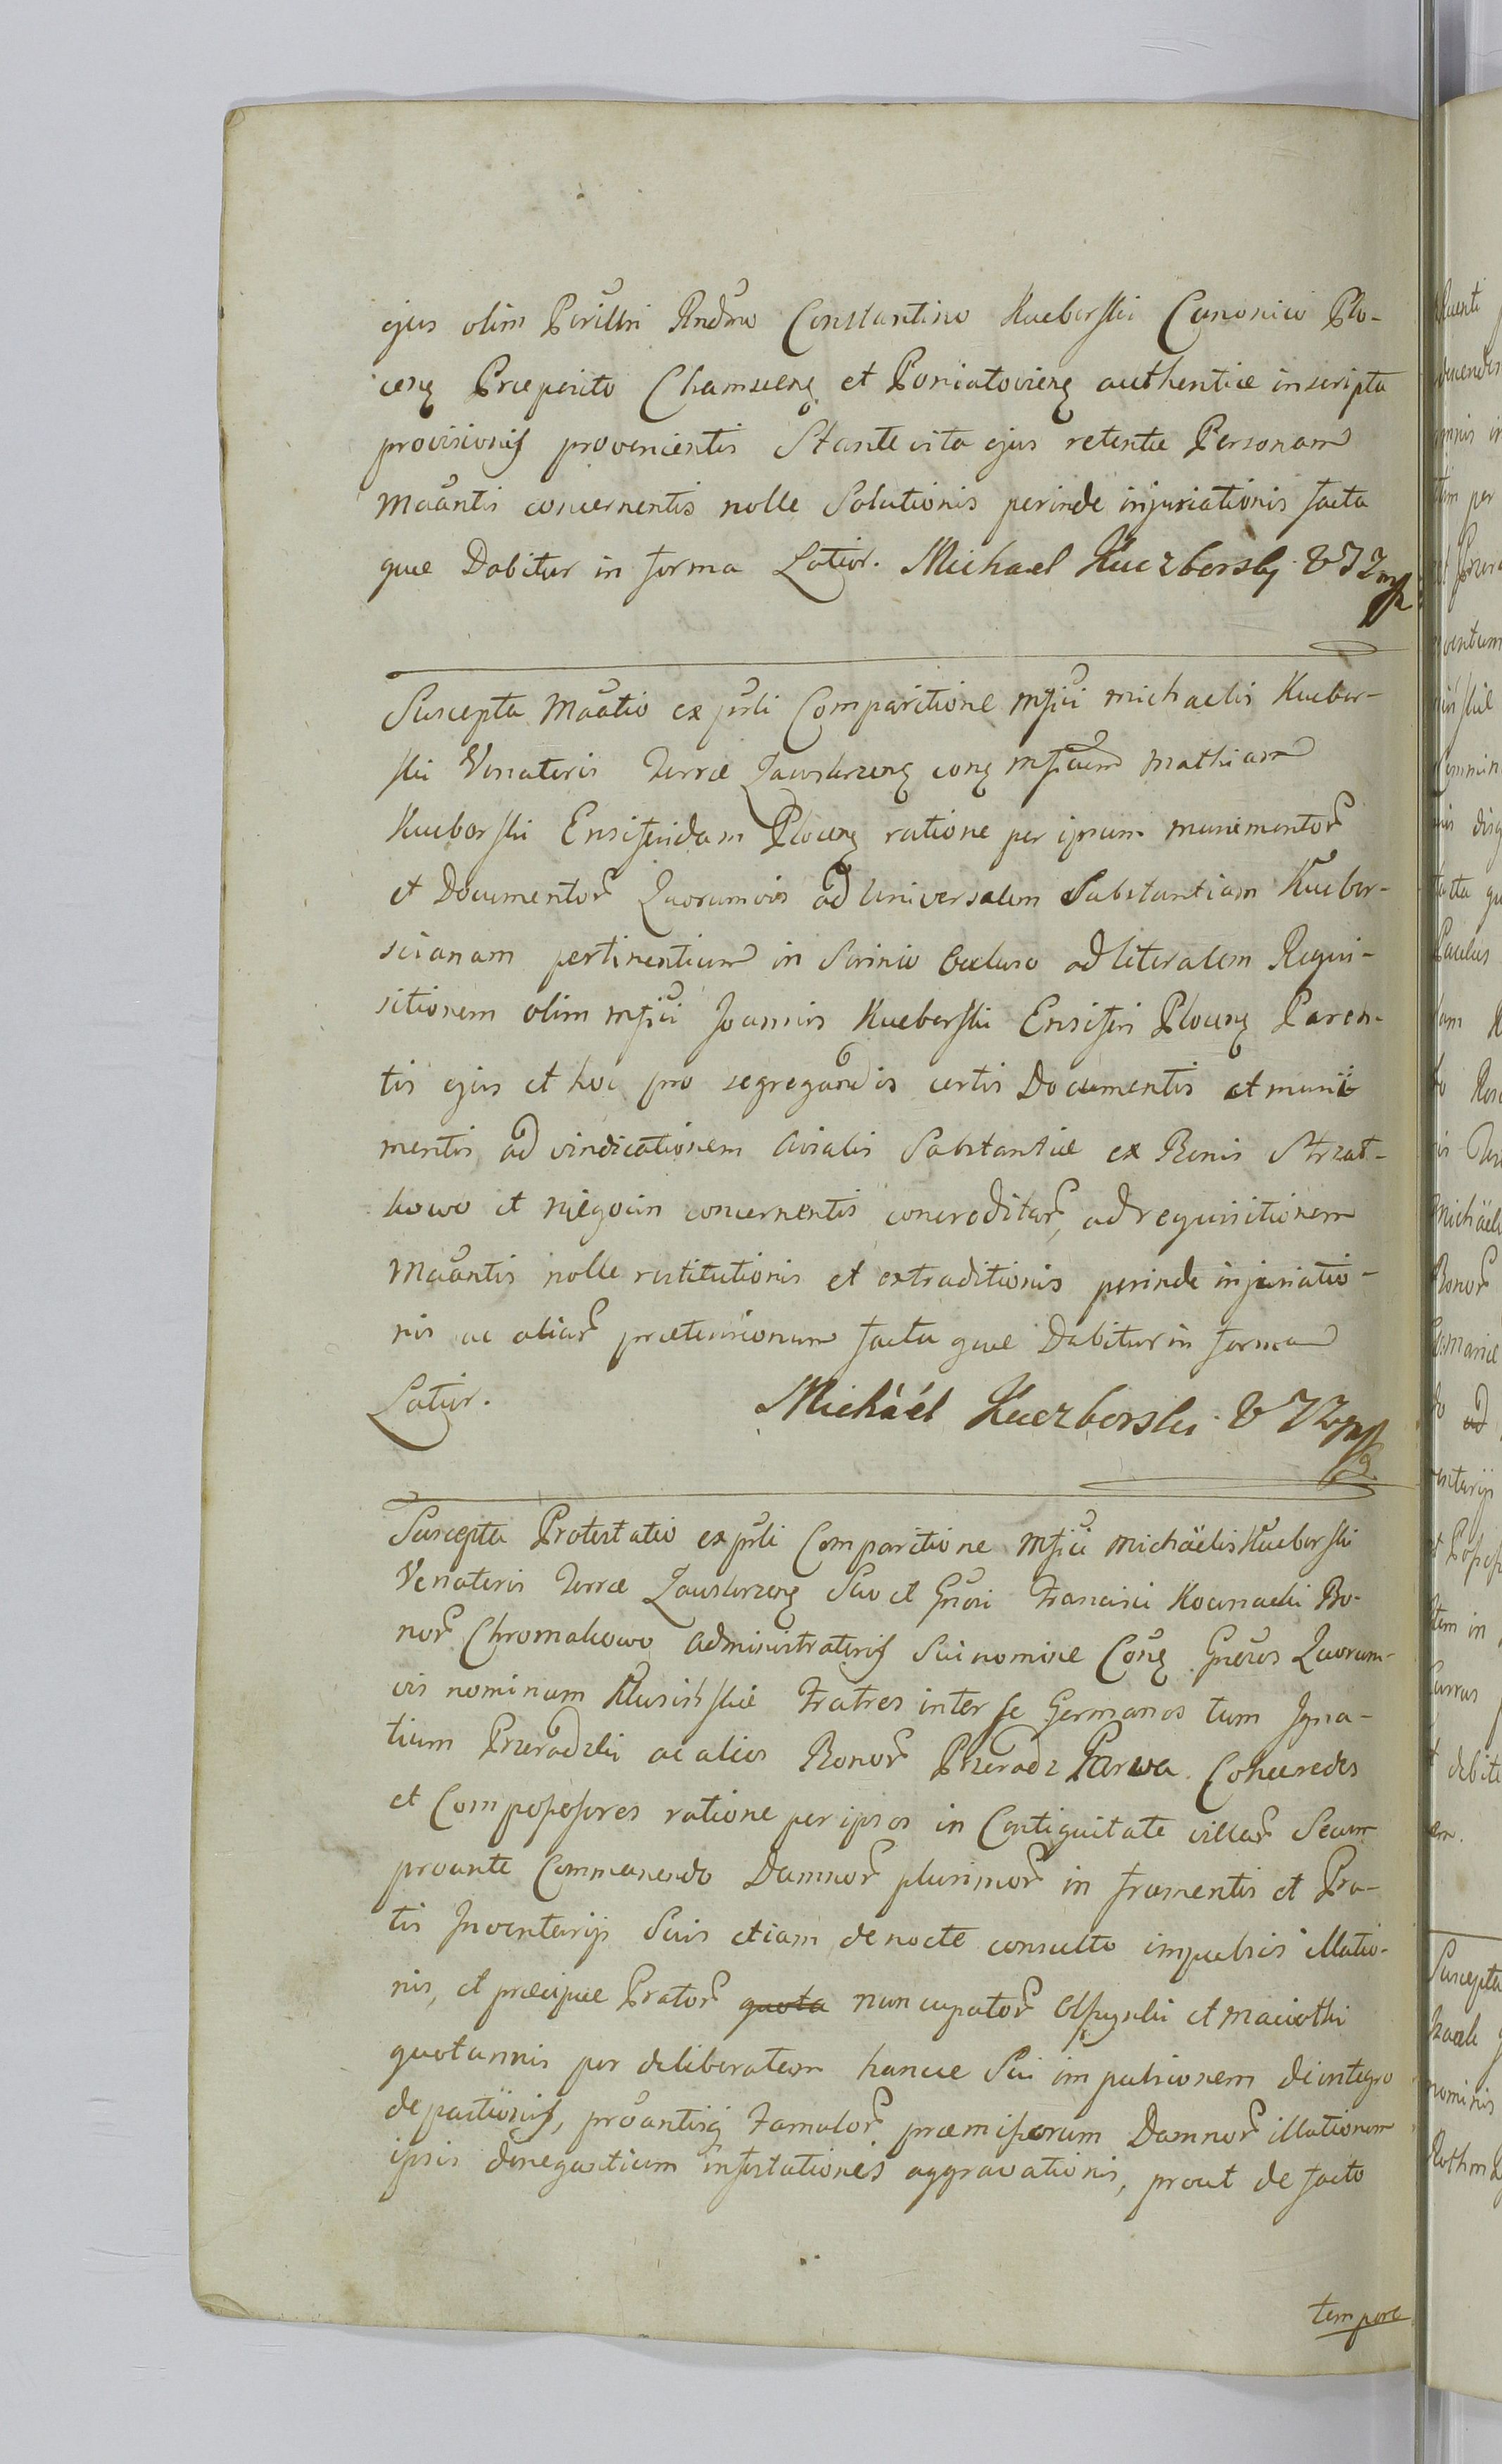 ejus olim Perillri Rndmo Constantino Kucborski Canonico Plo-
cens Præposito Chamscens et Poniatoviens authentice inscripta
provisionis provenientis Stante vita ejus retentæ Personam
Maantis concernentis nolle Solutionis perinde injuriationis facta
quæ Dabitur in forma Latior. Michael Kuczborsky V T Z mp
Suscepta Maatio ex prsli Comparitione Mfici Michaelis Kucbor-
ski Venatoris Terræ Zawskrzens cons Mficum Mathiam
Kucborski Ensiferidam Plocens ratione per ipsum munimentor
et Documentor Quorumvis ad Universalem Substantiam Kucbor-
scianam pertinentium in Scrinio Occluso ad literalem Requi-
sitionem olim Mfici Joannis Kucborski Ensiferi Plocens Paren-
tis ejus et hoc pro segregandis certis Documentis et muni
mentis ad vindicationem Avialis Substantiæ ex Bonis Strzał-
kowo et Niegocin concernentis concreditar, ad requisitionem
Maantis nolle restitutionis et extraditionis perinde injuriatio-
nis ac aliar prætensionum facta quæ Dabitur in forma
Latior. Michàél Kuczborski V T Z mp
Suscepta Protestatio ex prsli Comparitione Mfici Michäelis Kucborski
Venatoris Terræ Zawskrzens Suo et Gnosi Francisci Kocnacki Bo-
nor Chromakowo Administratoris Sui nomine Cons Gnosos Quorum-
vis nominum Klusinskie Fratres inter se Germanos tum Igna-
tium Przeradzki ac alios Bonor Przeradz Parva Cohæredes
et Compossessores ratione per ipsos in Contiguitate villar Secum
proante Commanendo Damnor plurimor in frumentis et Pra-
tis Inventarijs Suis etiam de nocte consulto impulsis illatio-
nis, et præcipue Prator quota nuncupator Olszynki et Maciołki
quotannis per deliberatam hancce Sui impulsionem de integro
depastionis, proantisq Famulor præmissorum Damnor illationem
ipsis denegantium infestationes aggravationis, prout de facto
tempore